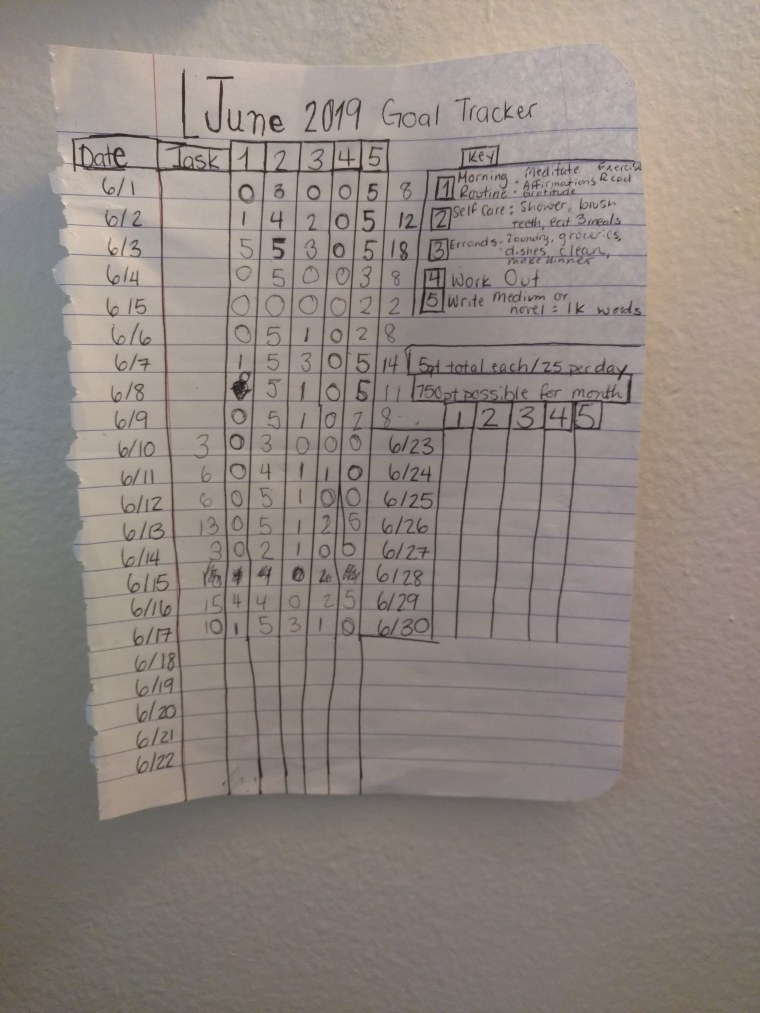 June 2019 Goal Tracker
Date Task 1 2 3 4 5 Key
6/1 0 3 0 0 5 8
1 Morning Routine: Meditate Exercise Affirmations Read Gratitude
6/2 1 4 2 0 5 12
2 Self Care: Shower, brush
teeth, eat 3 meals
6/3 5 5 3 0 5 18
3 Errands: laundry, groceries,
dishes, clean,
make dinner
6/4 0 5 0 0 3 8
4 Work Out
6/5 0 0 0 0 2 2
5 Write Medium or
novel = 1k words
6/6 0 5 1 0 2 8
6/7 1 5 3 0 5 14
5pt total each/25 per day
6/8 5 1 0 5 11
750pt possible for month
6/9 0 5 1 0 2 8
1 2 3 4 5
6/10 3 0 3 0 0 0 6/23
6/11 6 0 4 1 1 0 6/24
6/12 6 0 5 1 0 0 6/25
6/13 13 0 5 1 2 5 6/26
6/14 3 0 2 1 0 0 6/27
6/15 4 0 6/28
6/16 15 4 4 0 2 5 6/29
6/17 10 1 5 3 1 0 6/30
6/18
6/19
6/20
6/21
6/22